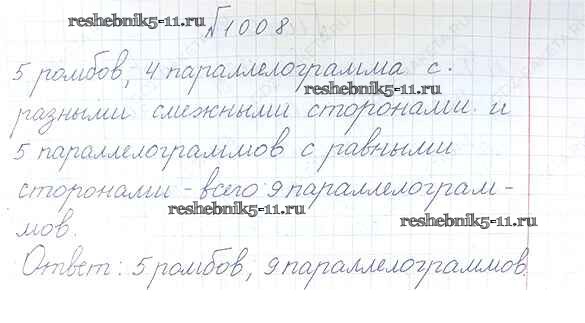 reshebnik5-11.ru
№1008.
5 ромбов, 4 параллелограмма с
reshebnik5-11.ru
разными смежными сторонами и
5 параллелограммов с равными
сторонами - всего 9 параллелограм-
reshebnik5-11.ru
reshebnik5-11.ru
мов.
Ответ: 5 ромбов, 9 параллелограммов.